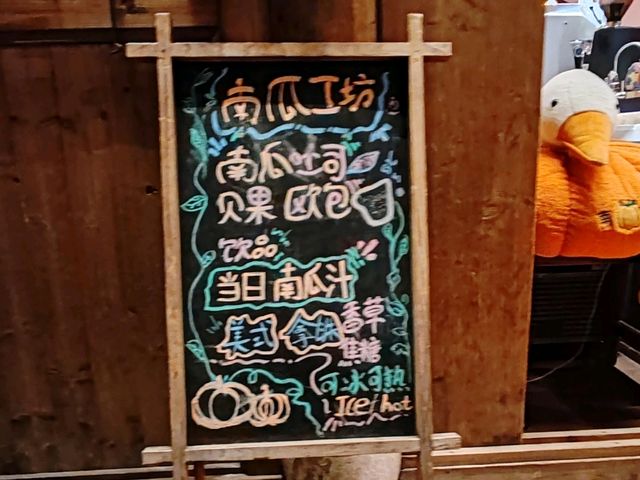 南瓜工坊
南瓜吐司
贝果 欧包
饮品
当日南瓜汁
美式 拿铁 香草
焦糖
可冰可热
Ice/hot